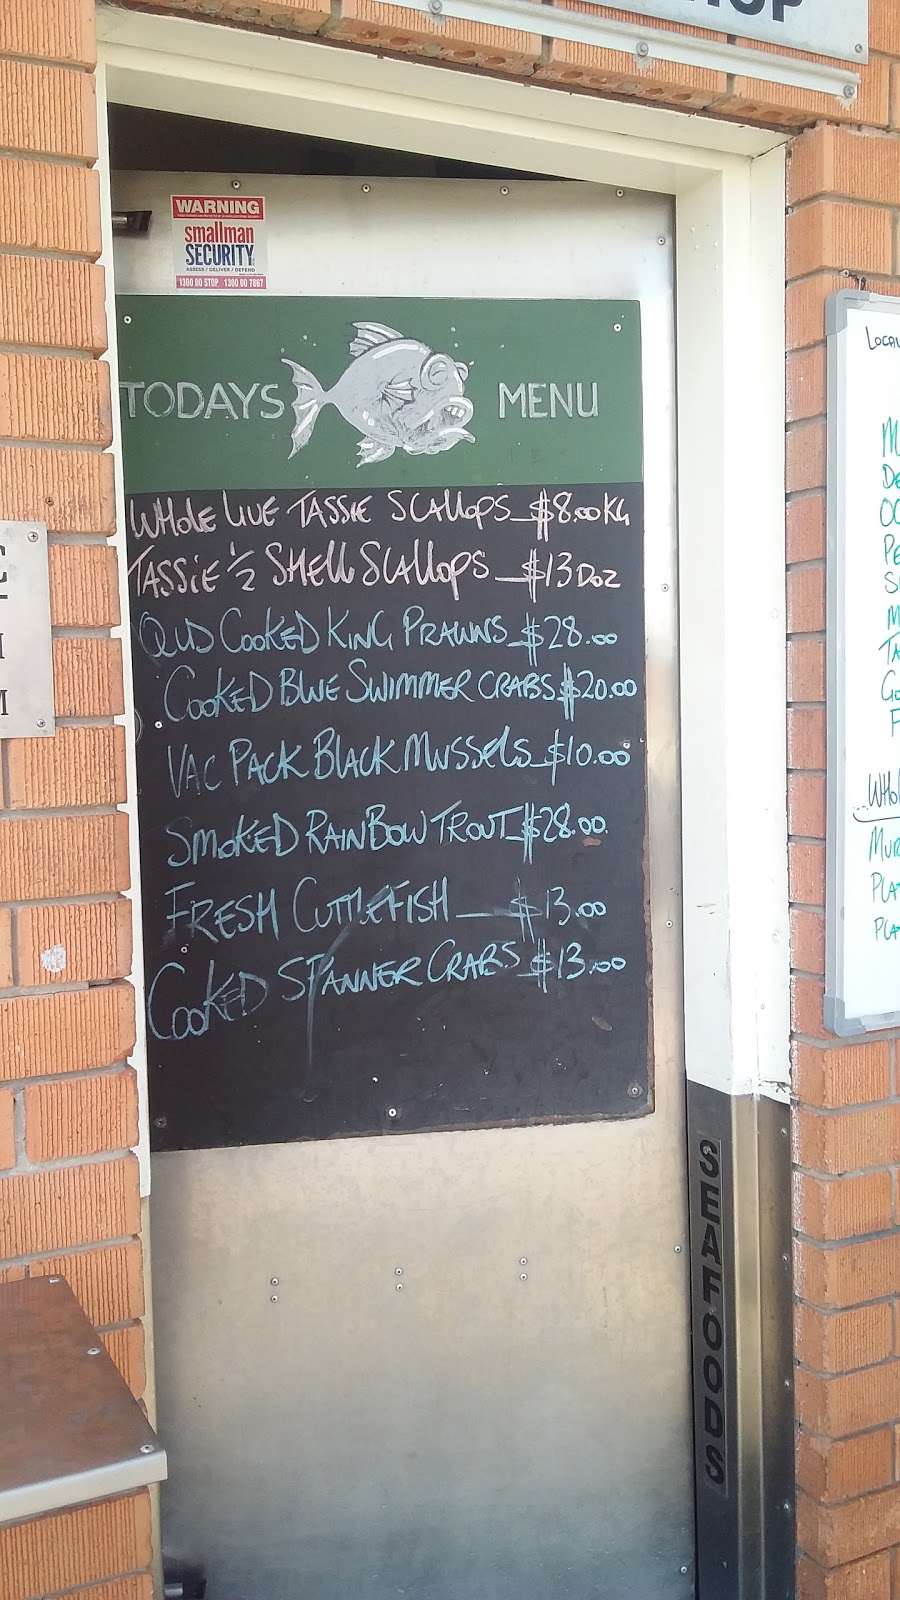 WARNING
smallman
SECURITY
ASSESS / DELIVER / DEFEND
1300 00 STOP 1300 00 7867
TODAYS MENU
WHOLE LIVE TASSIE SCALLOPS $8.00KG
TASSIE 1/2 SHELL SCALLOPS $13 DOZ
QLD COOKED KING PRAWNS $28.00
COOKED BLUE SWIMMER CRABS $20.00
VAC PACK BLACK MUSSELS $10.00
SMOKED RAINBOW TROUT $28.00
FRESH CUTTLEFISH $13.00
COOKED SPANNER CRABS $13.00
SEAFOODS